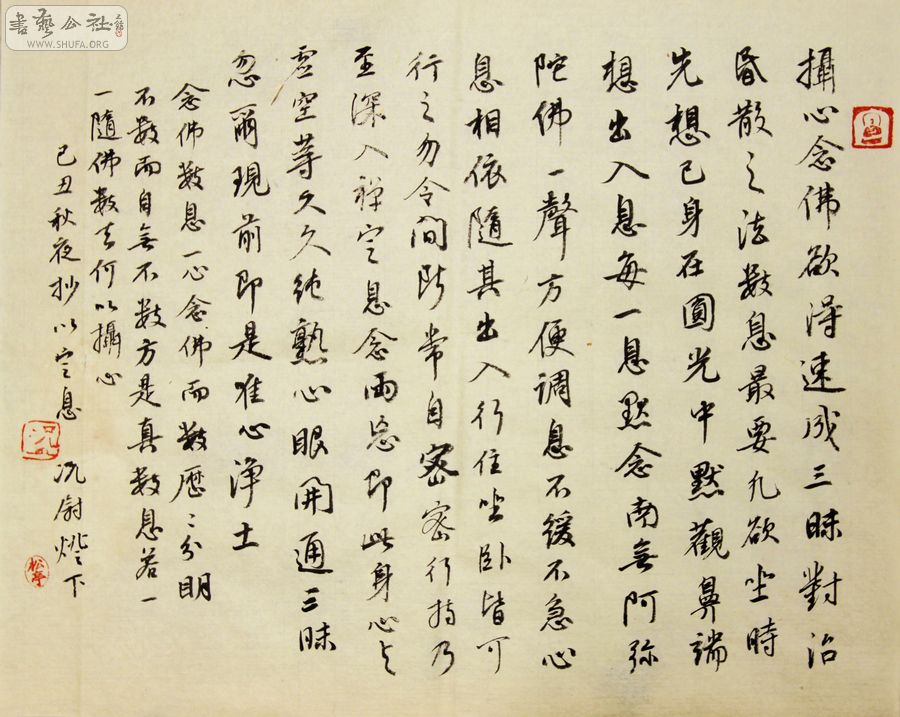 攝心念佛欲得速成三昧對治
昏散之法數息最要凡欲坐時
先想己身在圓光中默觀鼻端
想出入息每一息默念南無阿弥
陀佛一聲方便调息不緩不急心
息相依隨其出入行住坐卧皆可
行之勿令間断常自密密行持乃
至深入禅定息念兩忘即此身心与
虚空等久久純熟心眼開通三昧
忽爾現前即是唯心净土
念佛数息一心念佛而数歷〻分明
不数而自無不数方是真数息若一
一隨佛数去何以攝心
己丑秋夜抄以定息
况尉燈下
松亭
書藝公社
WWW.SHUFA.ORG